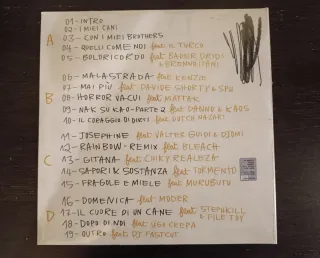 A
01- INTRO
02- I MIEI CANI
03- CON I MIEI BROTHERS
04- QUELLI COME NOI feat IL TURCO
05- GOLDRICORDO feat BADER DRIDI
& BRENNO ITANI
B
06- MALASTRADA feat KANZIE
07- MAI PIÙ feat DAVIDE SHORTY & SPH
08- HORROR VACUI feat MATTAK
09- NAK SU KAO-PARTE 2 feat DANNO & KAOS
10- IL CORAGGIO DI DIRTI feat DUTCH NAZARI
C
11- JOSEPHINE feat VALTER GUIDI & DJOMI
12- RAINBOW-REMIX feat BLEACH
13- GITANA- feat CHIKY REALEZA
14- SAPORI & SOSTANZA feat TORMENTO
15- FRAGOLE E MIELE feat MURUBUTU
D
16- DOMENICA- feat MODER
17- IL CUORE DI UN CANE- feat STEPHKILL
& PILE TOY
18- DOPO DI NOI feat UGO CREPA
19- OUTRO feat DJ FASTCUT